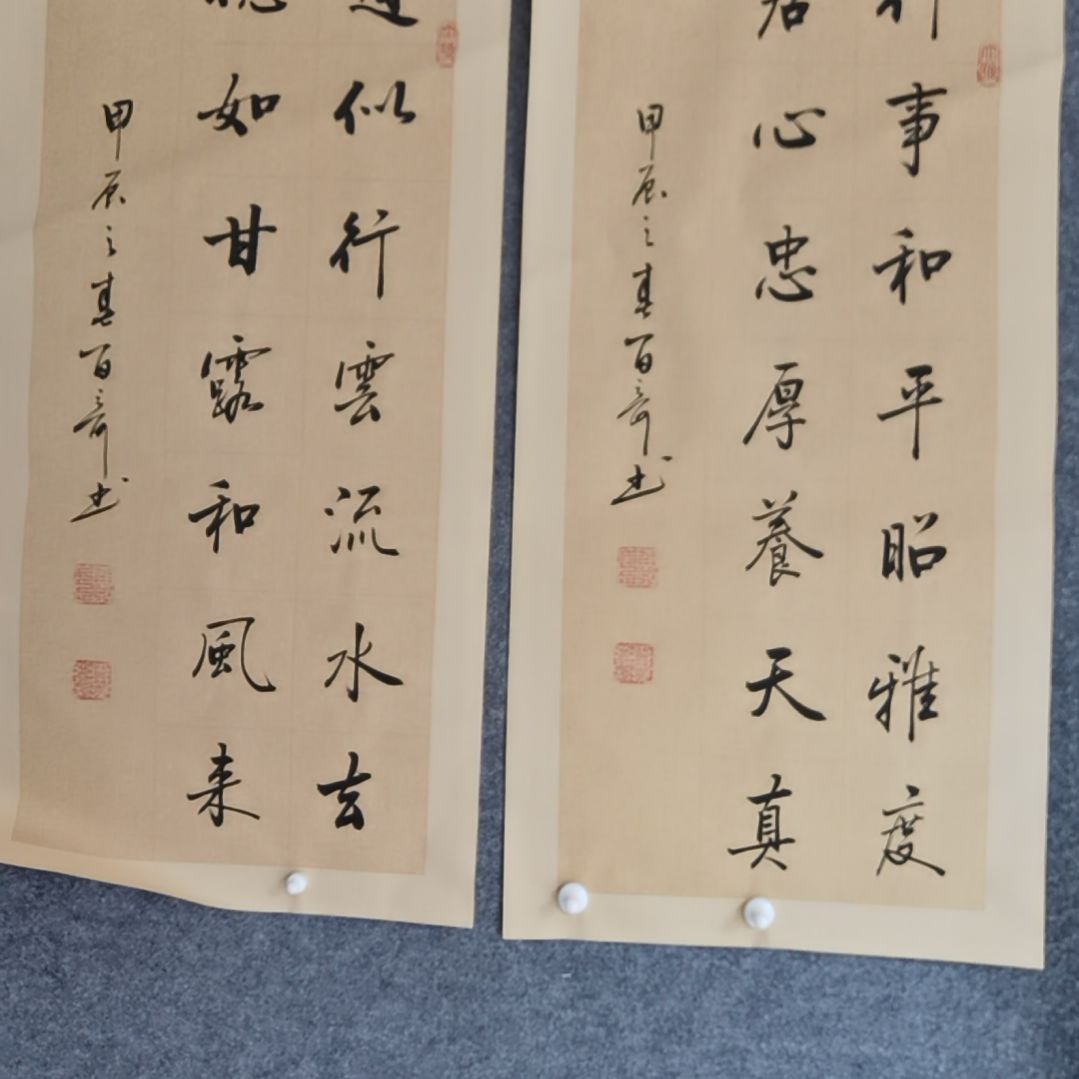 行事和平昭雅度
居心忠厚養天真
甲辰之春百奇书
似行雲流水去
如甘露和風来
甲辰之春百奇书